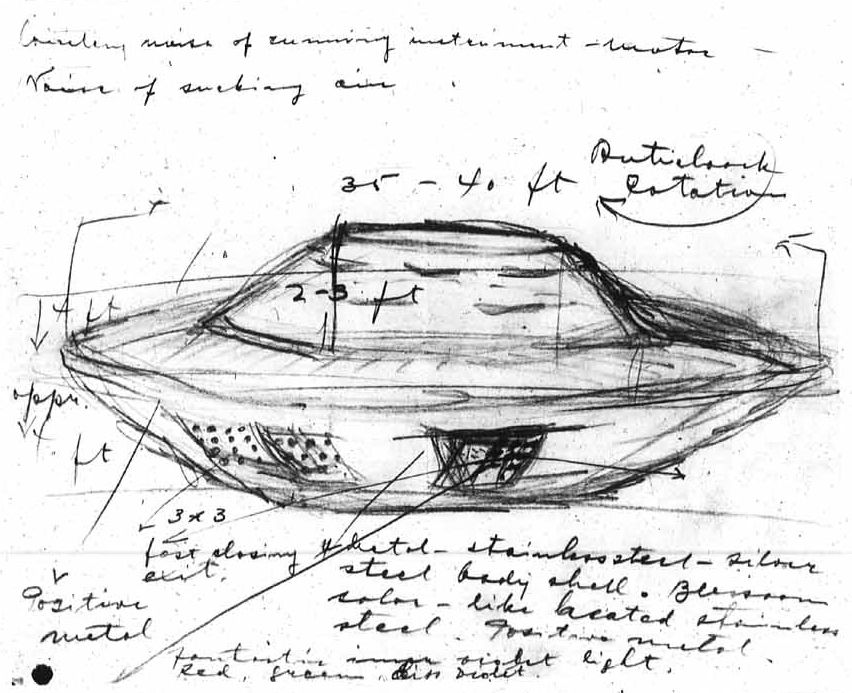 noise of running instrument - motor -
Noise of sucking air
35 - 40 ft
Anticlock
rotation
2-3 ft
4 ft
appr.
4 ft
3x3
fast closing
exit.
Positive
metal
metal - stainless steel - silver
steel body shell.
color - like heated stainless
steel. Positive metal.
fantastic inner violet light.
red, green, violet.